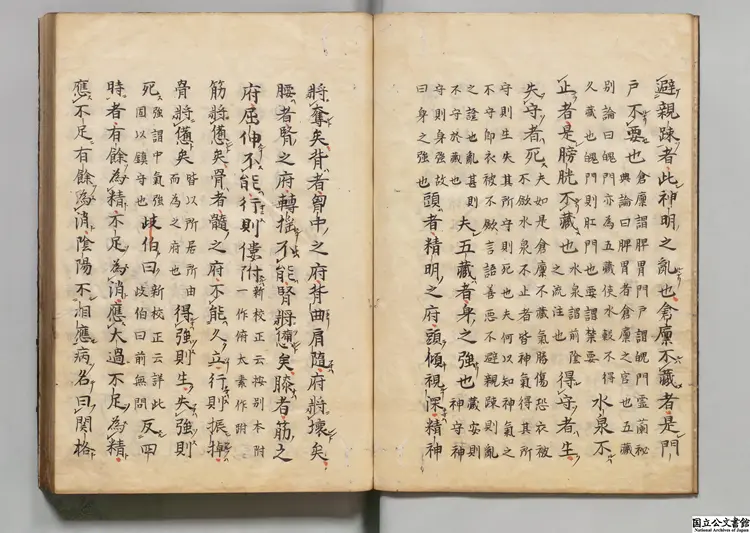 避親踈者此神明之亂也倉廩不藏者是門
戶不要也
倉廩謂脾胃門戶謂魄門靈蘭秘
典論曰脾胃者倉廩之官也五藏
別論曰魄門亦為五藏使水穀不得
久藏也魄門則肛門也要謂禁要
水泉不
止者是膀胱不藏也
水泉謂前陰
之流注也
得守者生
失守者死
夫如是倉廩不藏氣勝傷恐衣被
不歛水泉不止者皆神氣得其所
守則生失其所守則死也夫何以知神氣之
不守耶衣被不歛言語善惡不避親踈則亂
之證也亂甚則
不守於藏也
夫五藏者身之強也
藏安則
神守神
守則身強故
曰身之強也
頭者精明之府頭傾視深精神
將奪矣背者胷中之府背曲肩隨府將壞矣
腰者腎之府轉揺不能腎將憊矣膝者筋之
府屈伸不能行則僂附
新校正云按別本附
一作俯太素作附
筋將憊矣骨者髓之府不能久立行則振掉
骨將憊矣
皆以所居所由
而為之府也
得強則生失強則
死
強謂中氣強
固以鎮守也
歧伯曰
新校正云詳此
歧伯曰前無問
反四
時者有餘為精不足為消應太過不足為精
應不足有餘為消陰陽不相應病名曰関格
国立公文書館
National Archives of Japan